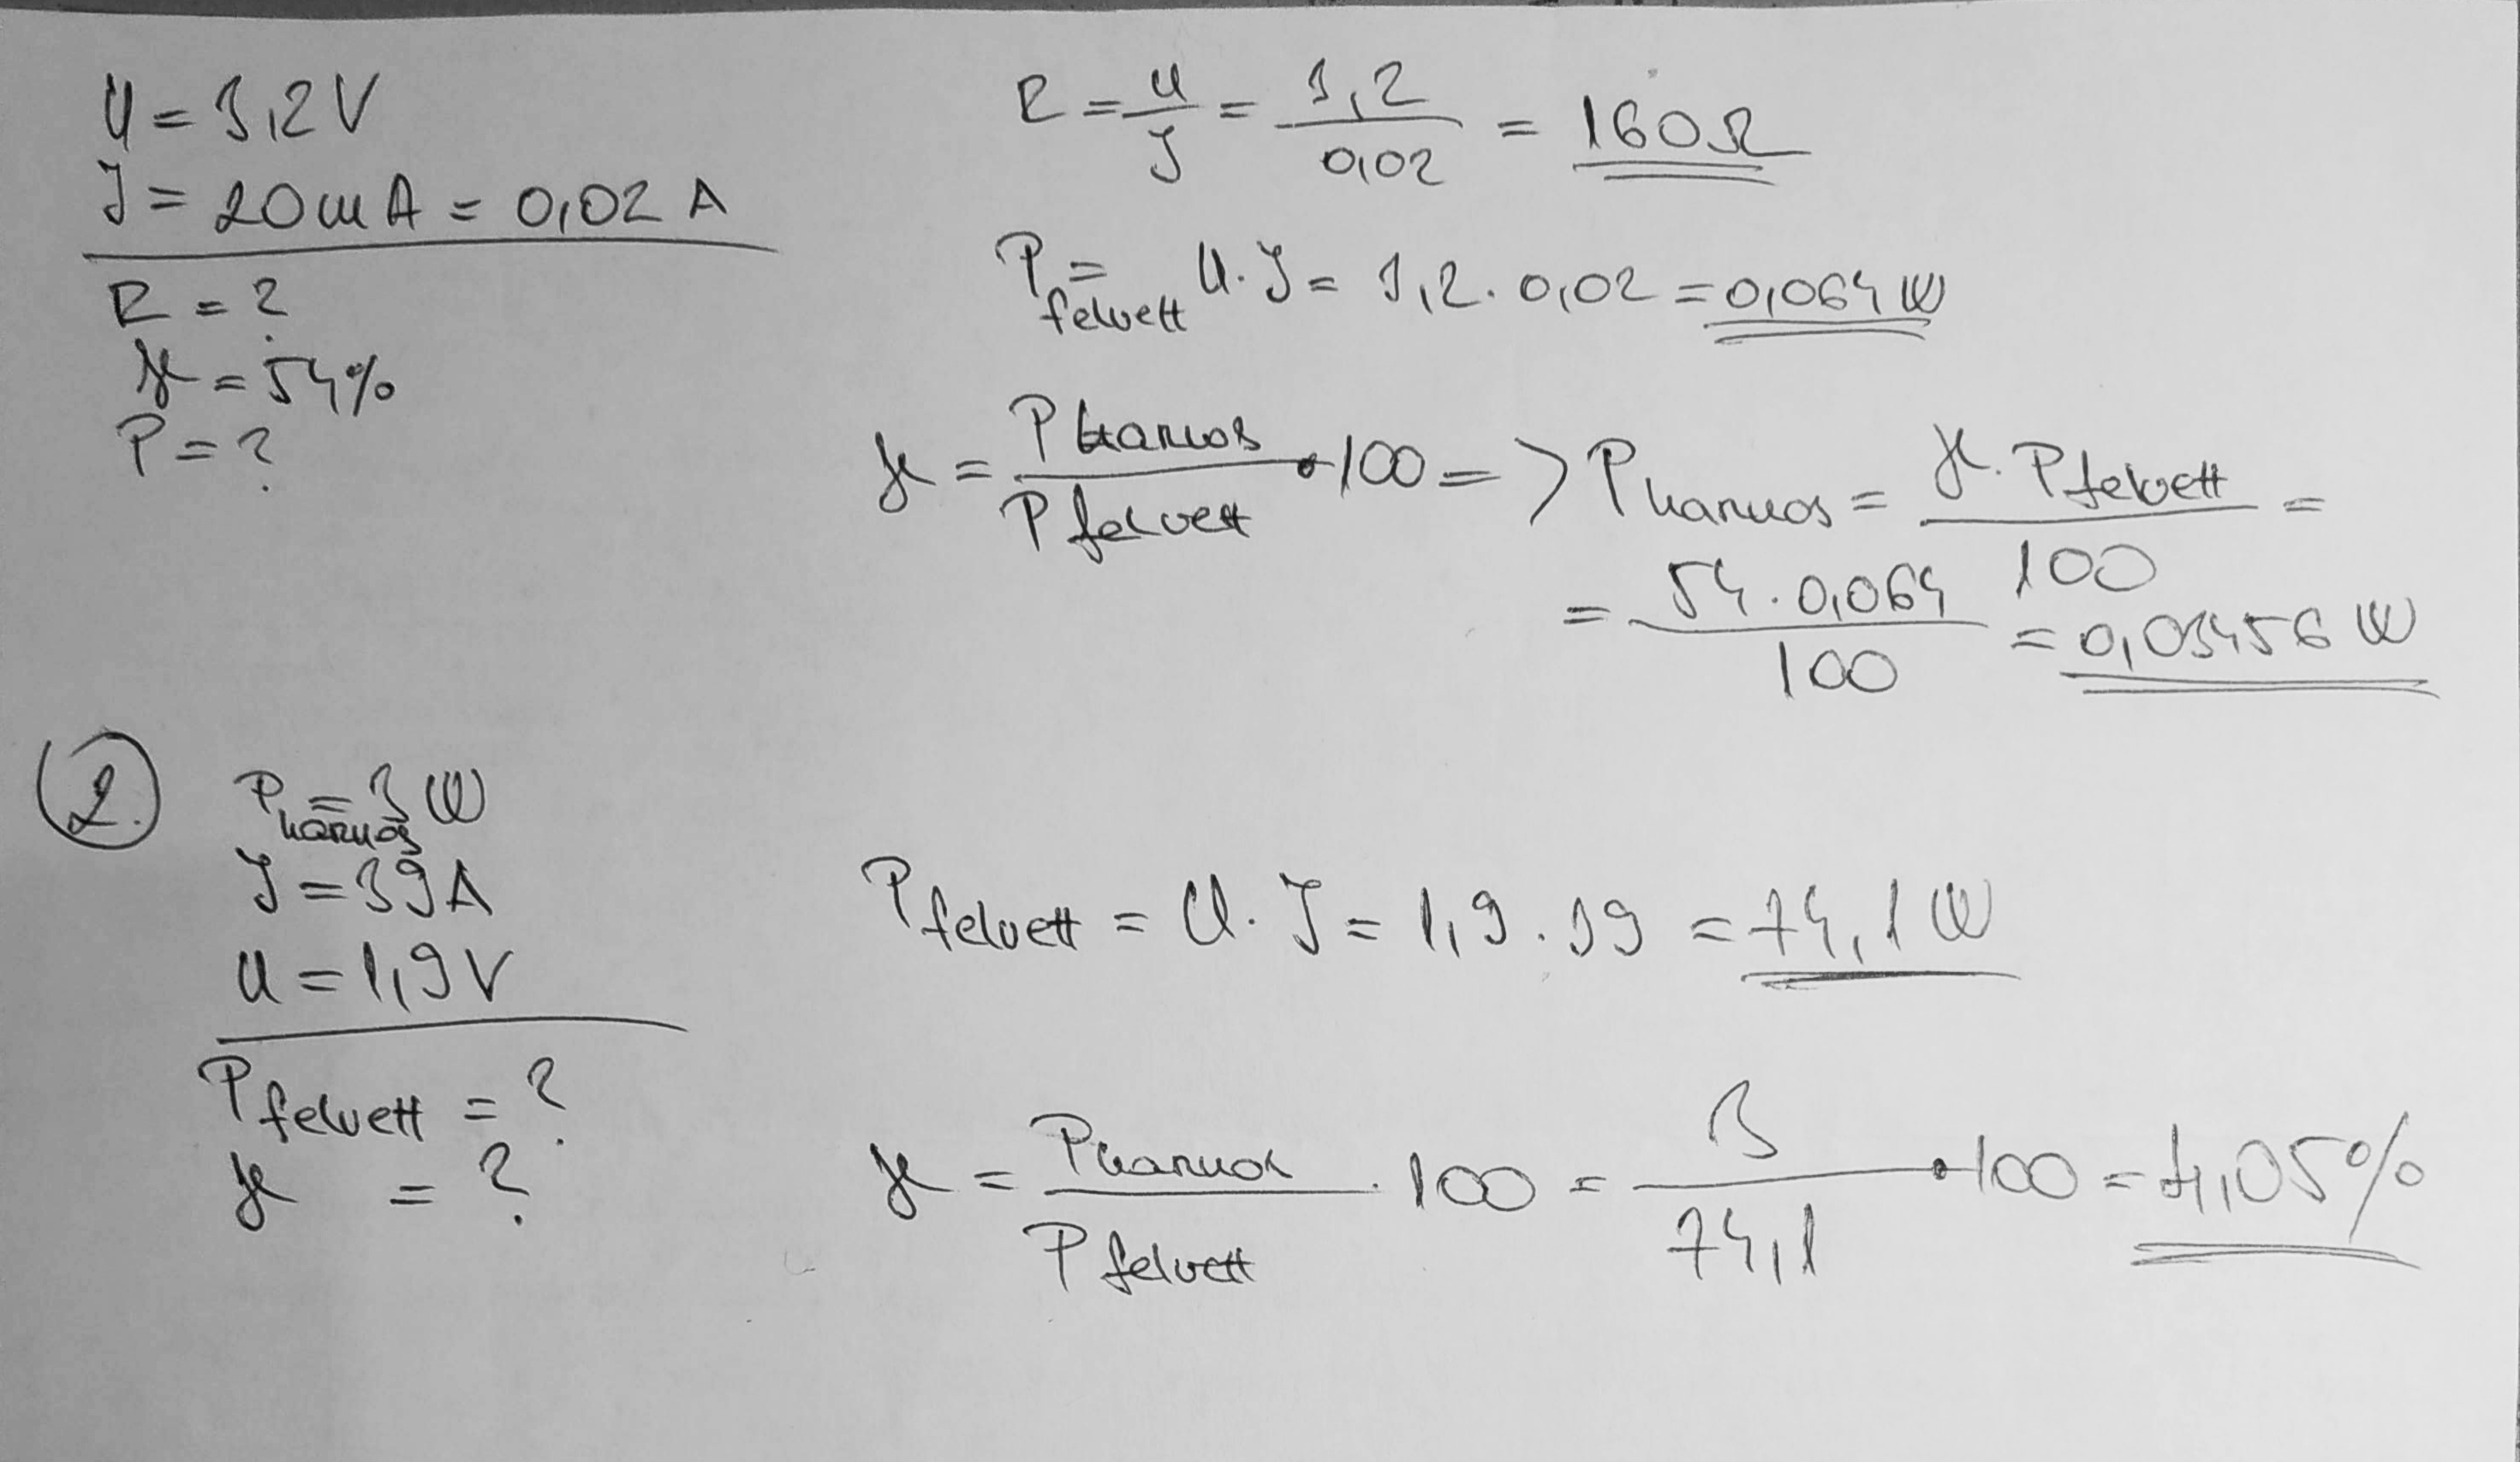 U = 3,2 V
I = 20 mA = 0,02 A
R = ?
η = 54%
P = ?
R = U/I = 3,2/0,02 = 160 Ω
P felvett = U · I = 3,2 · 0,02 = 0,064 W
η = P hasznos/P felvett · 100 => P hasznos = η · P felvett/100 =
= 54 · 0,064/100 = 0,03456 W
2.
P hasznos = 3 W
I = 39 A
U = 1,9 V
P felvett = ?
η = ?
P felvett = U · I = 1,9 · 39 = 74,1 W
η = P hasznos/P felvett · 100 = 3/74,1 · 100 = 4,05%